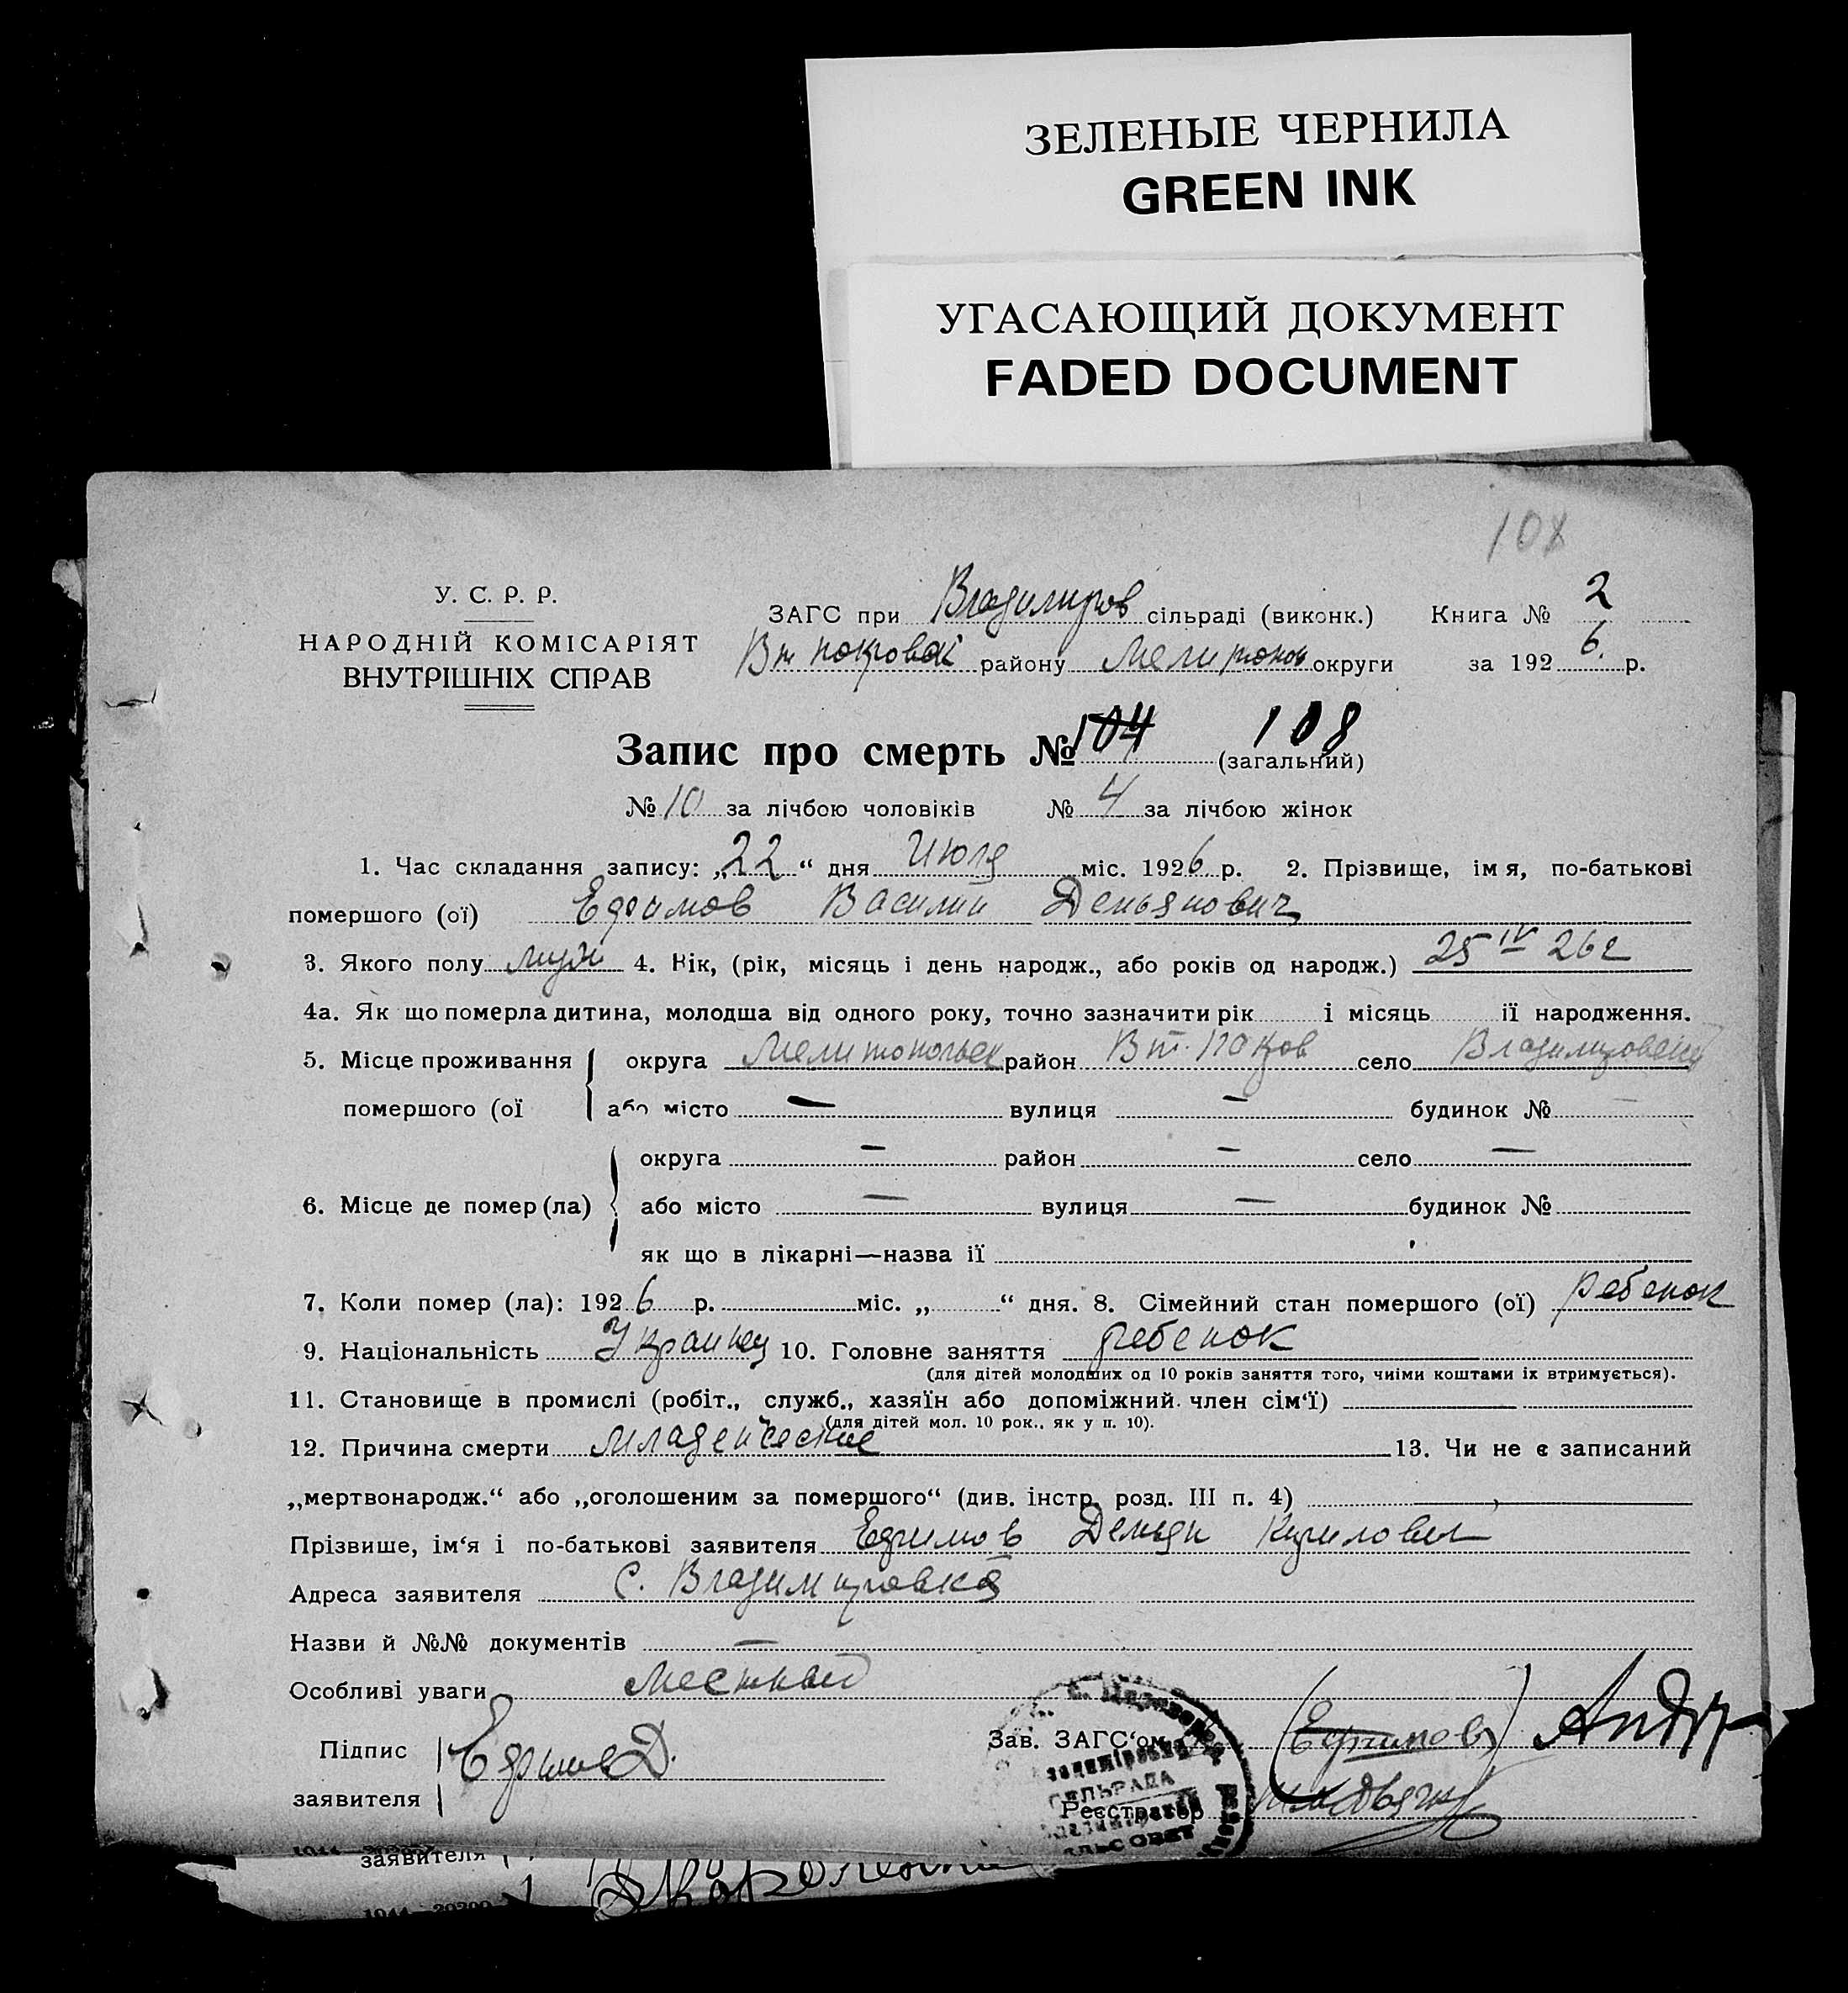 ЗЕЛЕНЫЕ ЧЕРНИЛА
GREEN INK
УГАСАЮЩИЙ ДОКУМЕНТ
FADED DOCUMENT
108
У. С. Р. Р.
НАРОДНІЙ КОМІСАРІЯТ
ВНУТРІШНІХ СПРАВ
ЗАГС при Владимиров сільраді (виконк.) Книга № 2
Вт покровск району Мелитопов округи за 1926. р.
Запис про смерть № 104 108 (загальний)
№ 10 за лічбою чоловіків № 4 за лічбою жінок
1. Час складання запису: „22“ дня Июля міс. 1926 р. 2. Прізвище, імя, по-батькові
помершого (ої) Ефимов Василий Демьянович
3. Якого полу муж 4. Вік, (рік, місяць і день народж., або років од народж.) 25 IV 26 г
4а. Як що померла дитина, молодша від одного року, точно зазначити рік і місяць її народження.
5. Місце проживання округа Мелитопольск район Вт. Покров село Владимировски
помершого (ої або місто — вулиця — будинок № —
округа — район — село —
6. Місце де помер (ла) або місто — вулиця — будинок №
як що в лікарні—назва її
7. Коли помер (ла): 1926 р. міс. „ “ дня. 8. Сімейний стан помершого (ої) ребенок
9. Національність Украинец 10. Головне заняття ребенок
(для дітей молодших од 10 років заняття того, чиїми коштами їх втримується).
11. Становище в промислі (робіт., служб., хазяїн або допоміжний член сім‘ї)
(для дітей мол. 10 рок., як у п. 10).
12. Причина смерти младенческие 13. Чи не є записаний
„мертвонародж.“ або „оголошеним за помершого“ (див. інстр. розд. III п. 4)
Прізвише, ім‘я і по-батькові заявителя Ефимов Демьян Кирилович
Адреса заявителя С. Владимировка
Назви й №№ документів —
Особливі уваги Местный
Підпис Ефимов Д. Зав. ЗАГС‘ом (Ефимов)
заявителя Реєстратор
СЕЛЬРАДА
заявителя